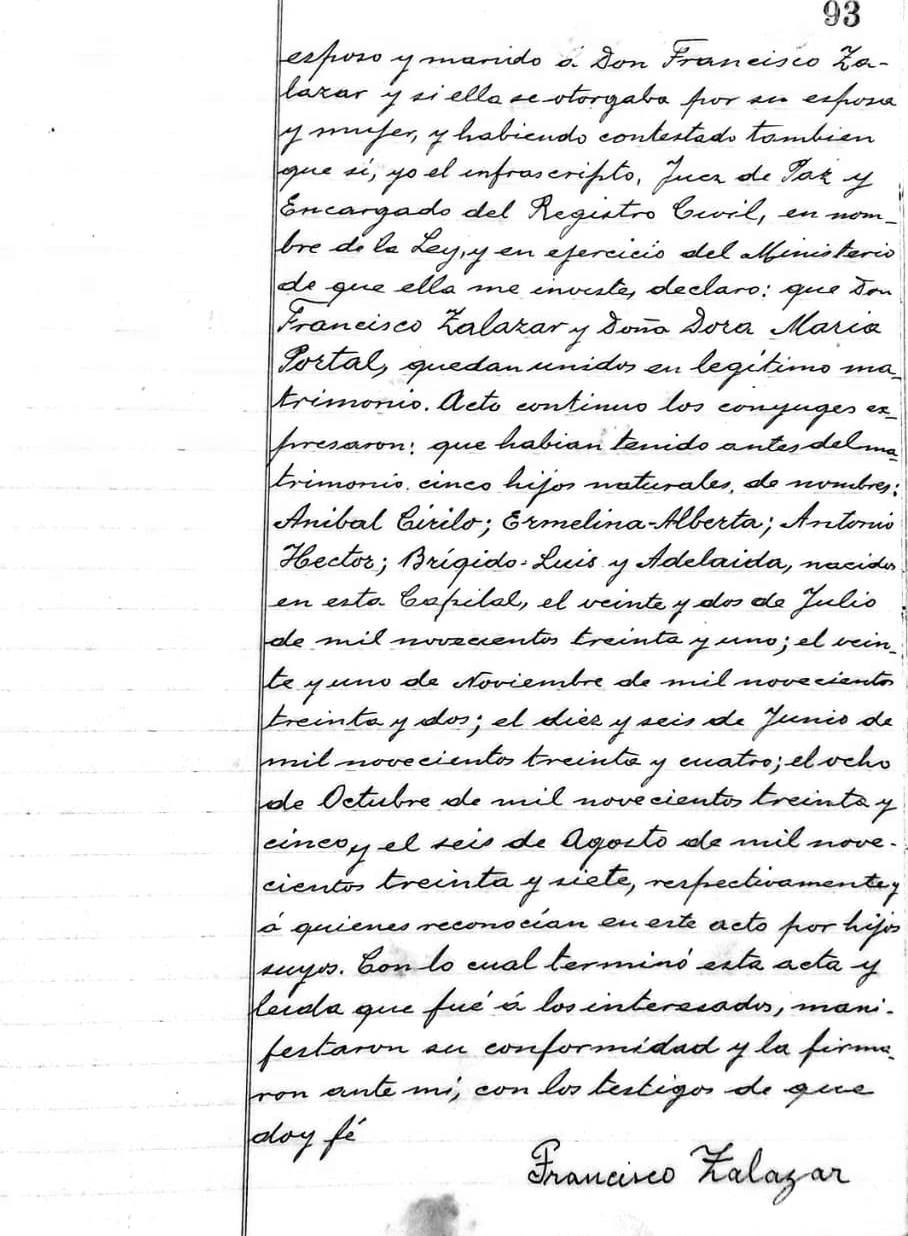 93
esposo y marido á Don Francisco Za-
lazar y si ella se otorgaba por su esposa
y mujer, y habiendo contestado tambien
que sí, yo el infrascripto, Juez de Paz y
Encargado del Registro Civil, en nom-
bre de la Ley, y en ejercicio del Ministerio
de que ella me inviste, declaro: que Don
Francisco Zalazar y Doña Dora Maria
Portal, quedan unidos en legítimo ma-
trimonio. Acto continuo los conyuges ex-
presaron: que habian tenido antes del ma-
trimonio cinco hijos naturales, de nombres:
Anibal Cirilo; Ermelina-Alberta; Antonio
Hector; Brígido-Luis y Adelaida, nacidos
en esta Capital, el veinte y dos de Julio
de mil novecientos treinta y uno; el vein-
te y uno de Noviembre de mil novecientos
treinta y dos; el diez y seis de Junio de
mil novecientos treinta y cuatro; el ocho
de Octubre de mil novecientos treinta y
cinco, y el seis de Agosto de mil nove-
cientos treinta y siete, respectivamente y
á quienes reconocían en este acto por hijos
suyos. Con lo cual terminó esta acta y
leida que fué á los interesados, mani-
festaron su conformidad y la firma-
ron ante mí, con los testigos de que
doy fé
Francisco Zalazar